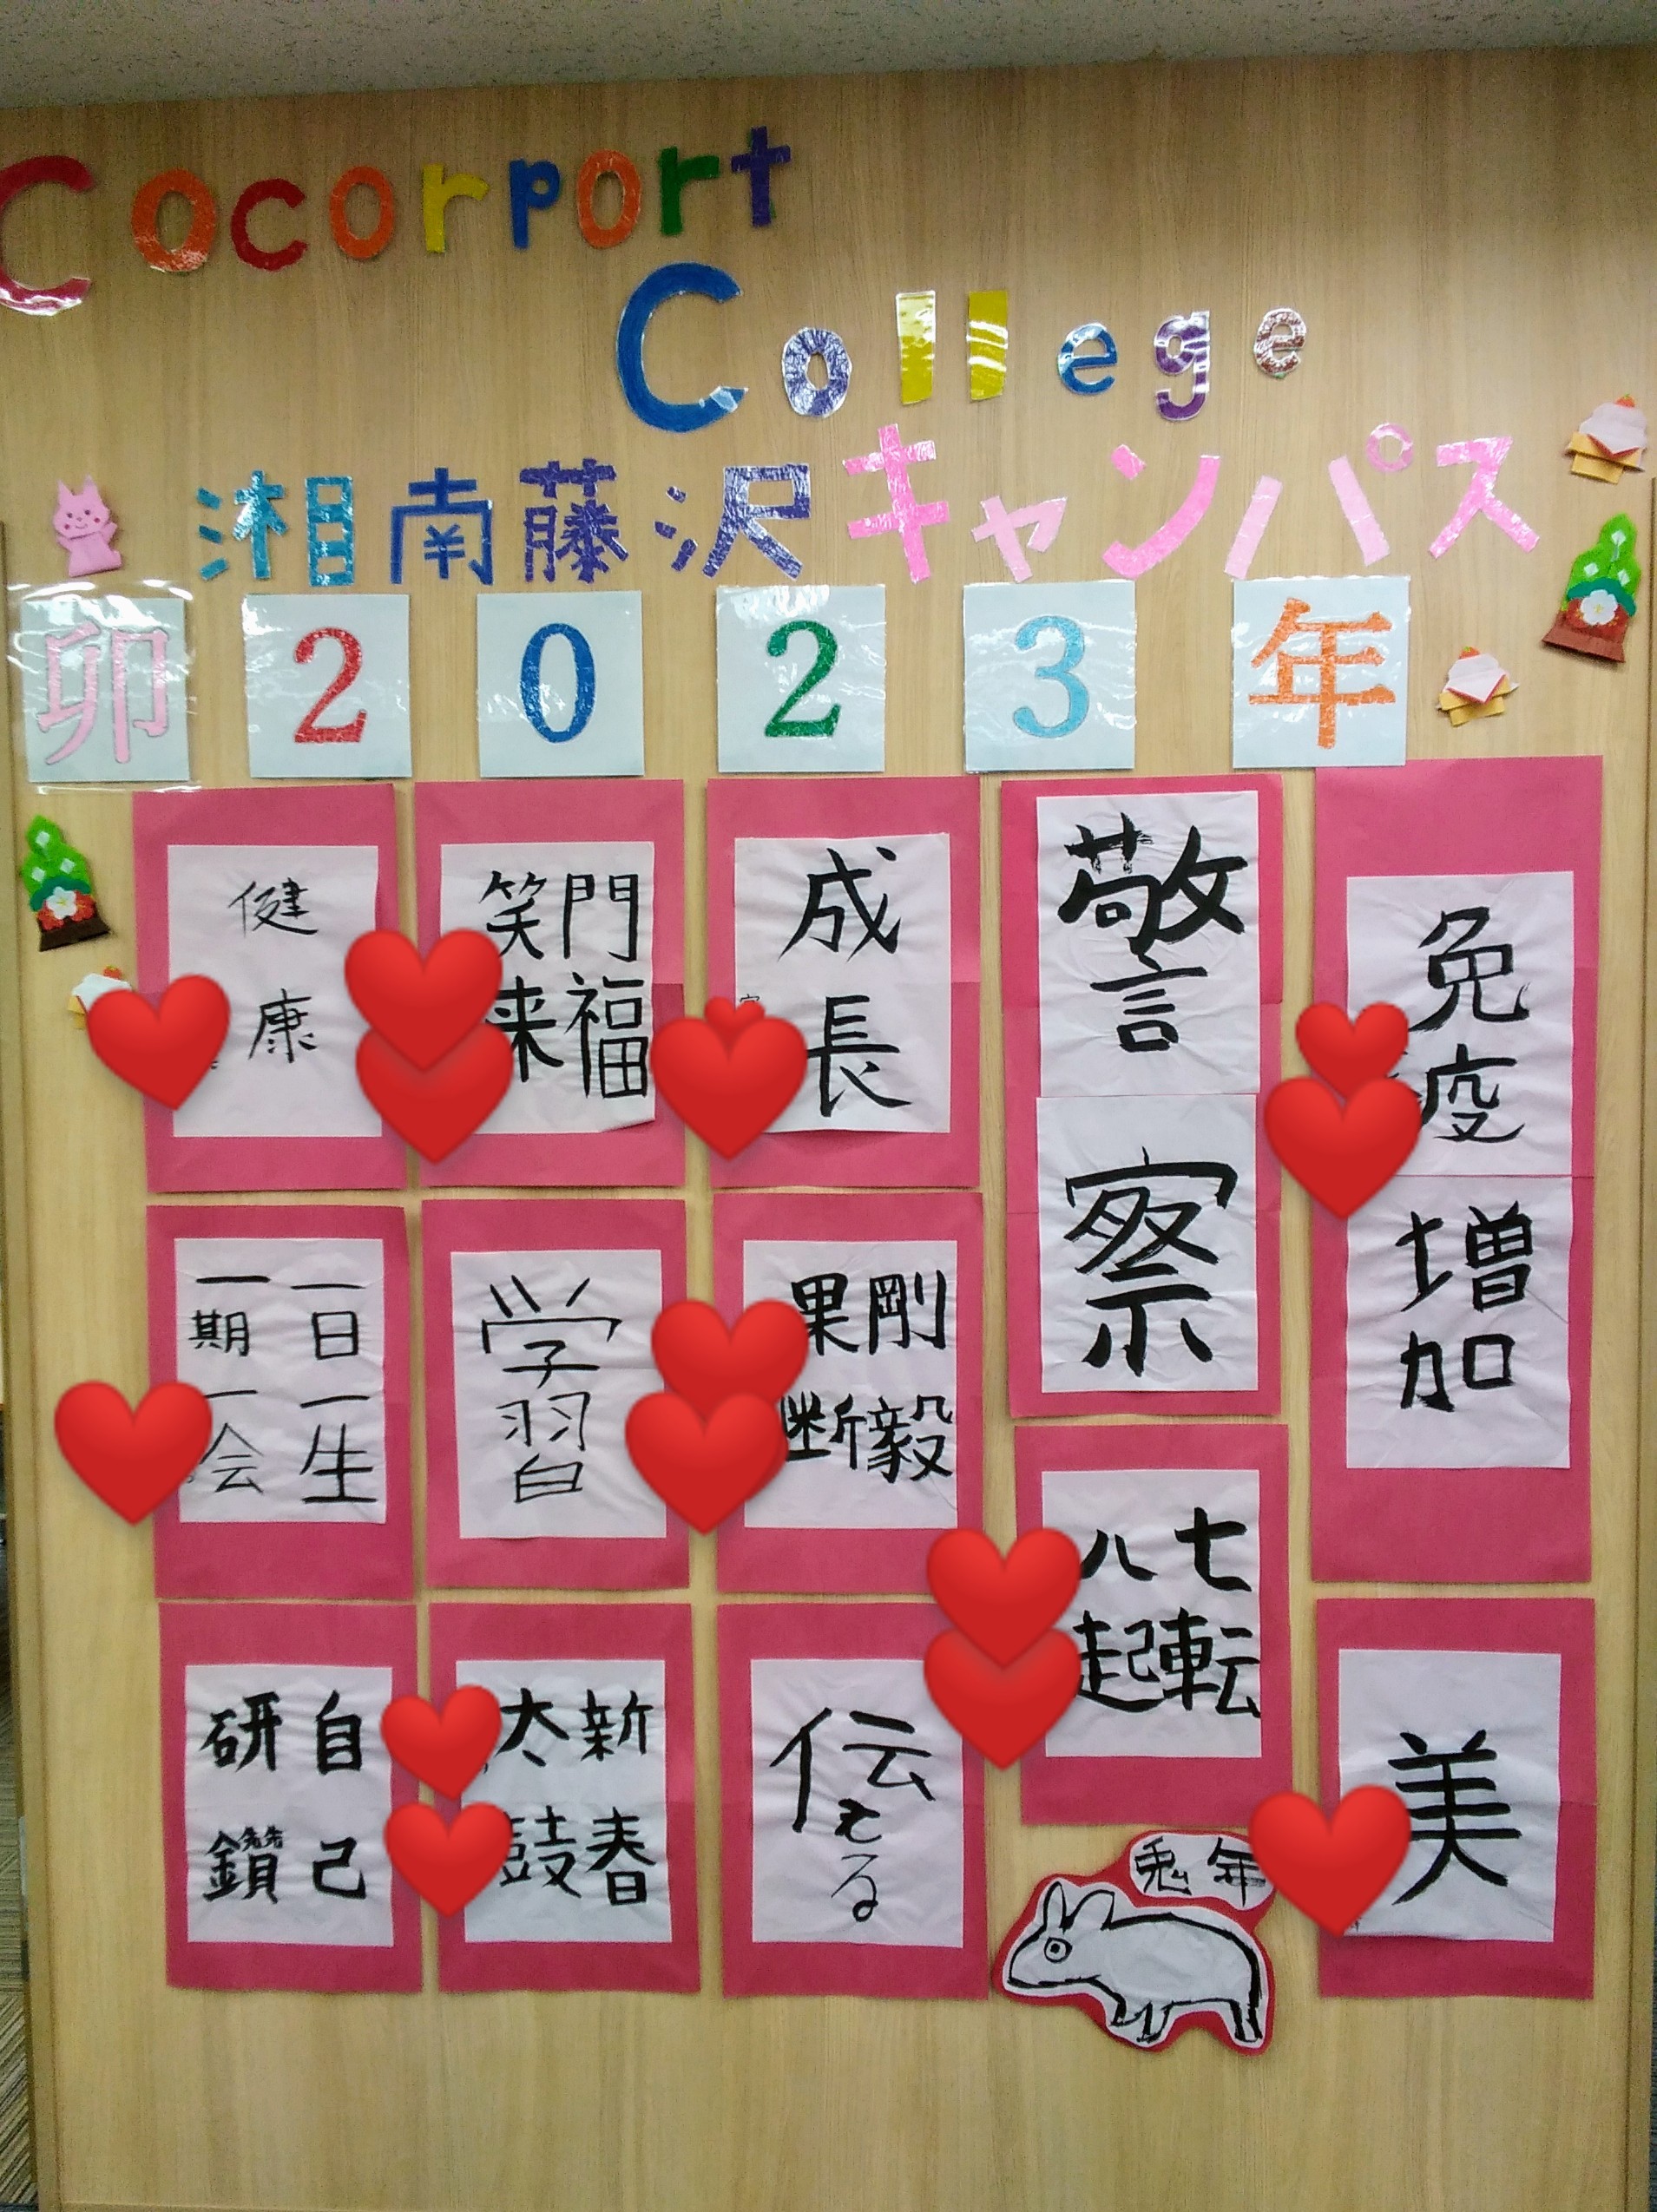 Cocorport
College
湘南藤沢キャンパス
卯2023年
健康
門福
笑来
成長
警察
免疫
増加
一日一生
一期一会
学習
剛毅
果断
七転
八起
自己
研鑽
新春
太鼓
伝える
美
兎年